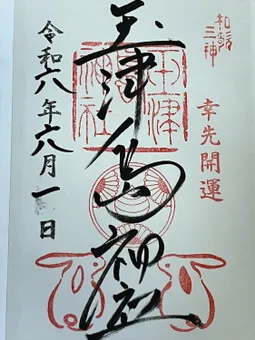 和歌三神
幸先開運
玉津島神社
玉津島神社
令和六年六月一日